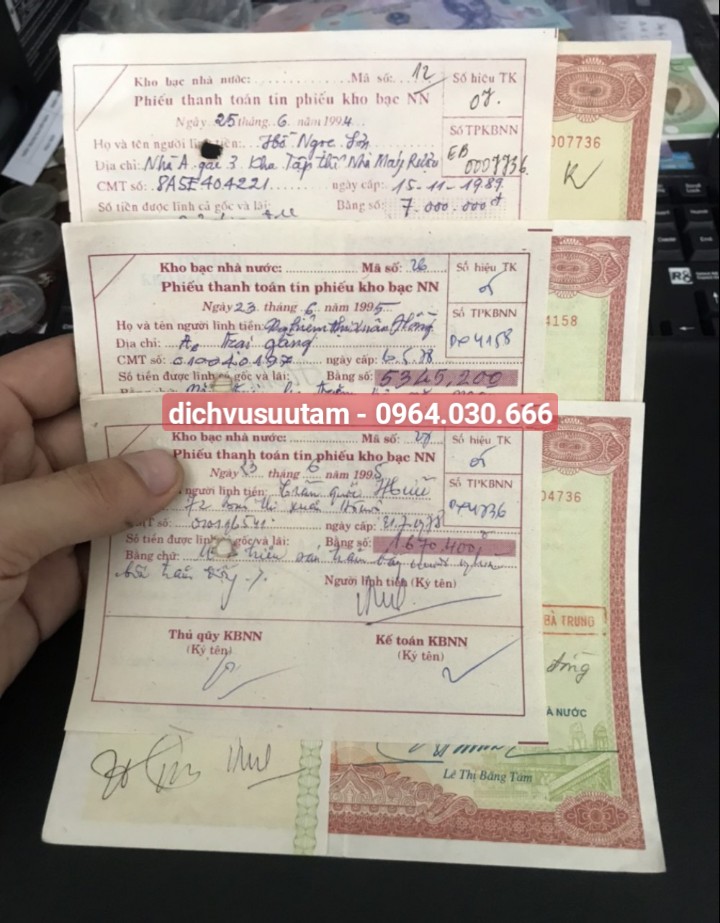 Kho bạc nhà nước: Mã số: 12
Số hiệu TK
Phiếu thanh toán tín phiếu kho bạc NN
07.
Ngày 25 tháng 6 năm 1994
Số TPKBNN
Họ và tên người lĩnh tiền: Hồ Ngọc
EB 0007736
007736
K
Địa chỉ: Nhà A gác 3 Khu Tập thể Nhà Máy Rượu
CMT số: 8A5E404221 ngày cấp: 15-11-1989
Số tiền được lĩnh cả gốc và lãi: Bằng số: 7.000.000đ
Kho bạc nhà nước: Mã số: 26
Số hiệu TK
Phiếu thanh toán tín phiếu kho bạc NN
Ngày 23 tháng 6 năm 1995
Số TPKBNN
4158
4158
Họ và tên người lĩnh tiền: Xuân
Địa chỉ:
CMT số: 010040197 ngày cấp: 6.5.78
Số tiền được lĩnh cả gốc và lãi: Bằng số: 5345,200
dichvusuutam - 0964.030.666
Kho bạc nhà nước: Mã số: 27
Số hiệu TK
Phiếu thanh toán tín phiếu kho bạc NN
Ngày 23 tháng 6 năm 1995
Số TPKBNN
4736
04736
người lĩnh tiền: Trần Quốc
72 thị xuân
CMT số: ngày cấp: 21.7.1978
Số tiền được lĩnh cả gốc và lãi: Bằng số: 1670.400đ
Bằng chữ: triệu sáu trăm bảy mươi nghìn
bốn trăm đồng
Người lĩnh tiền (Ký tên)
BÀ TRƯNG
Thủ qũy KBNN
(Ký tên)
Kế toán KBNN
(Ký tên)
đồng
À NƯỚC
Lê Thị Băng Tâm